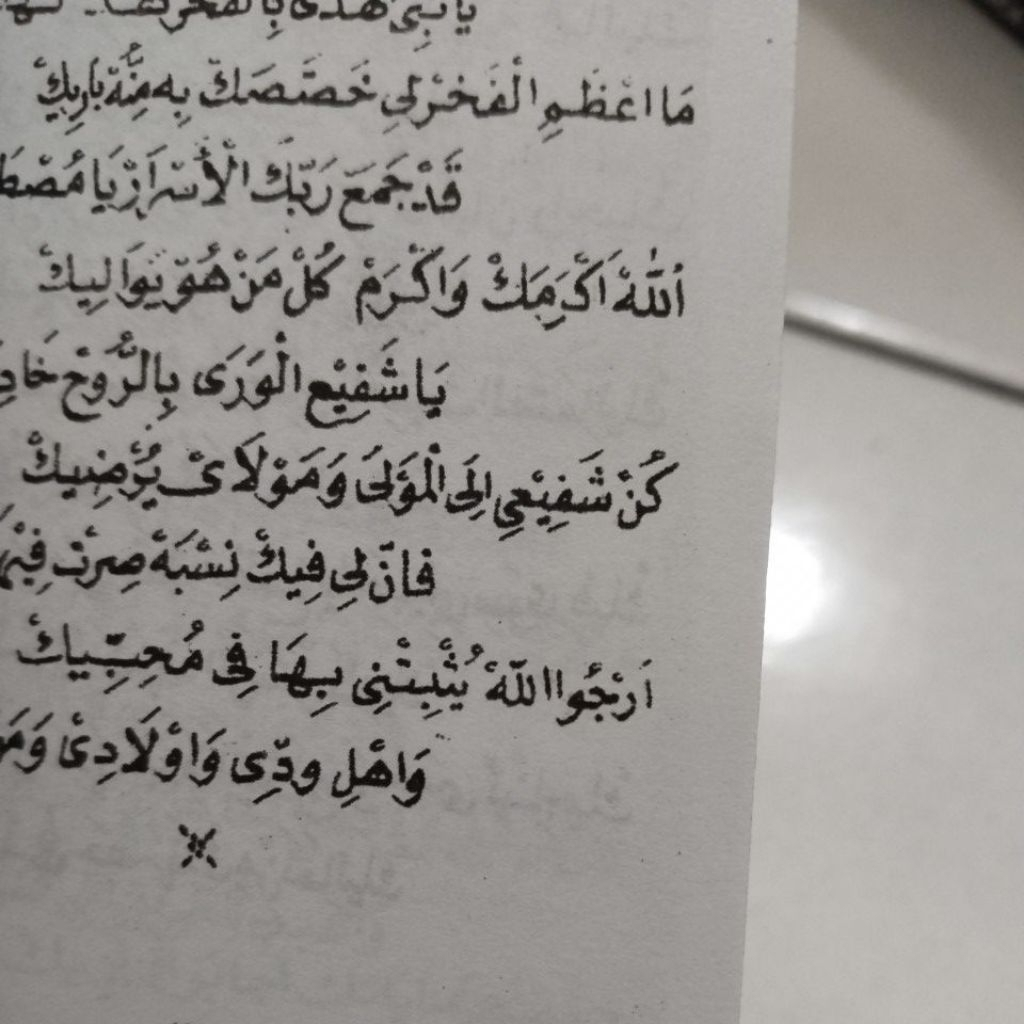 مَا اعْظَمِ الْفَخْرْ لِي خَصَّصَكْ بِهِ مِنَّةْ بَارِيكْ
قَدْ جَمَعَ رَبَّكَ الْأَسْرَارْ يَا
اَللهْ اَكْرَمَكْ وَاكْرَمْ كُلْ مَنْ هُوْ يِوَالِيكْ
يَا شَفِيْعِ الْوَرَى بِالرُّوْحْ
كُنْ شَفِيْعِي اِلَى الْمَوْلَى وَمَوْلَايْ يُرْضِيكْ
فَانّ لِي فِيكْ نِسْبَةْ صِرْتْ
اَرْجُوا اللّهْ يُثْبِتْنِى بِهَا فِى مُحِبِّيكْ
وَاهْلِ وِدِّى وَاوْلَادِىْ